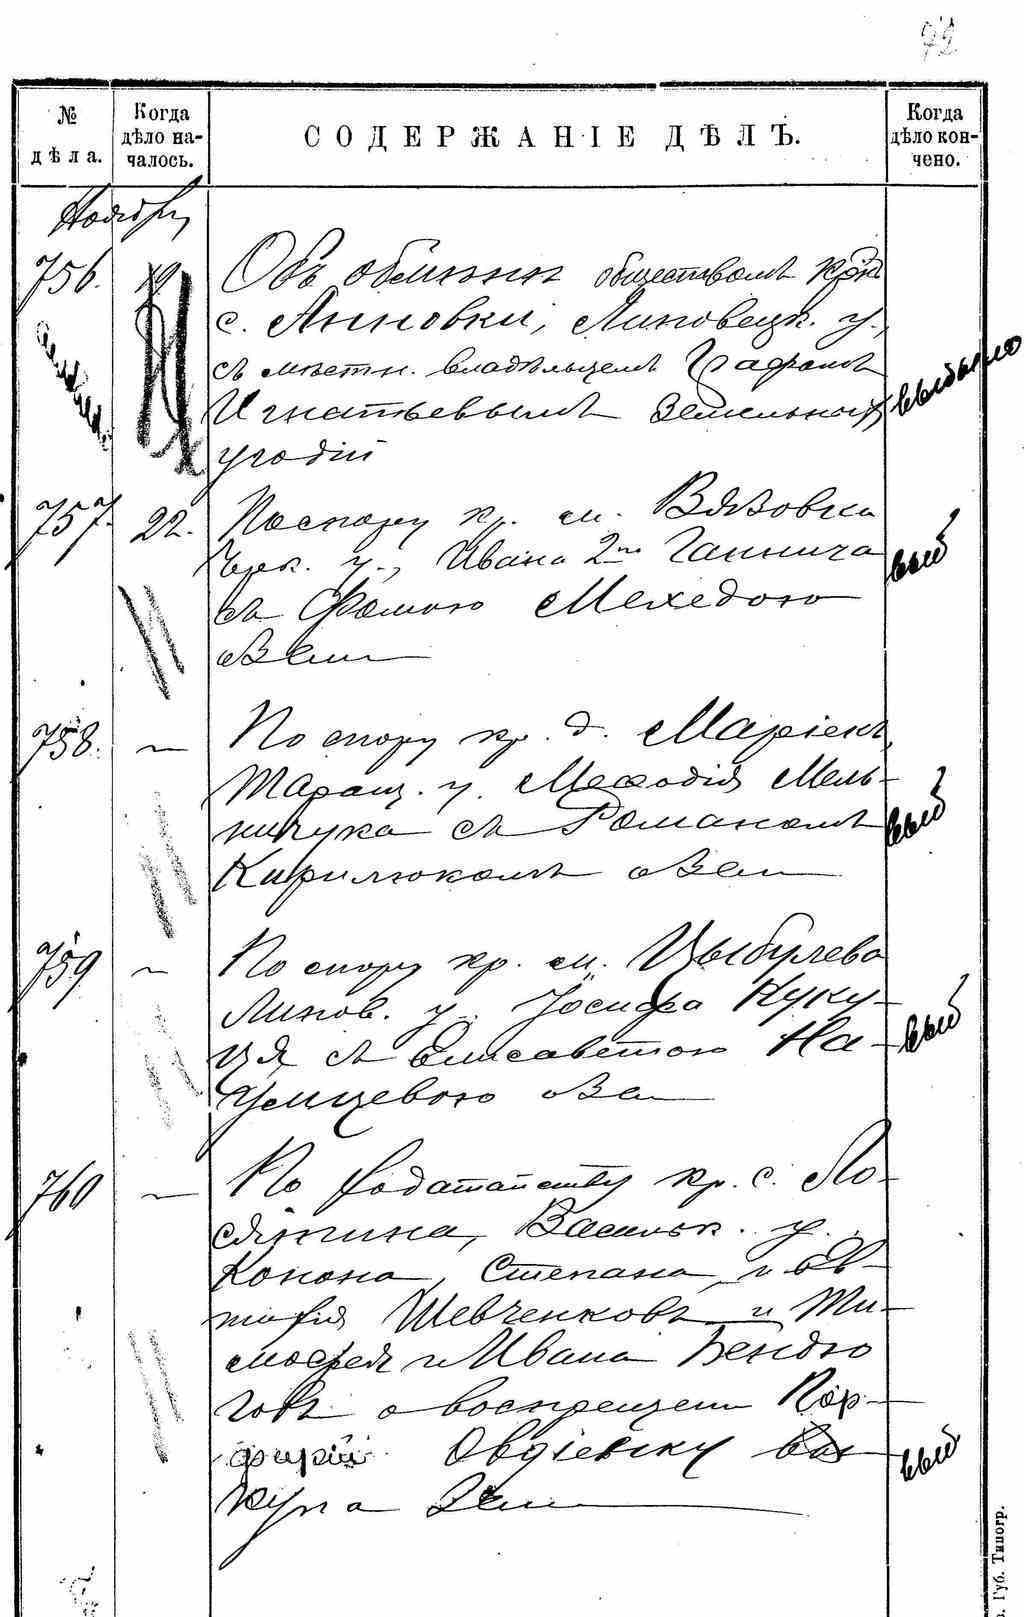 92
№ дѣла.
Когда дѣло началось.
СОДЕРЖАНІЕ ДѢЛЪ.
Когда дѣло кончено.
Ноября
756. 19 Объ обмѣнѣ обществомъ крн
с. Анновки, Липовецк. у.,
съ мѣстн. владѣльцемъ Графомъ
Игнатьевымъ земельных
угодій
757. 22. По спору кр. м. Вязовка
Черк. у., Ивана 2го Ганнича
съ Фомою Мехедою
о зем
выб
758. — По спору кр. д.
Таращ. у. Меѳодія Мель-
ничука съ Романомъ
Кирилюкомъ о зем
выб
759 — По спору кр. м. Цыбулева
Липов. у. Іосифа Куку-
съ Елисаветою На-
умцевою о зем
выб
760 — По ходатайству кр. с. По-
Васильк. у.
Конона, Степана и Ев-
тифія Шевченковъ и Ти-
мофея и Ивана Бендю
говъ о воспрещен Пор-
фирій Овдіевску вы
купа зем
выб
Губ. Типогр.